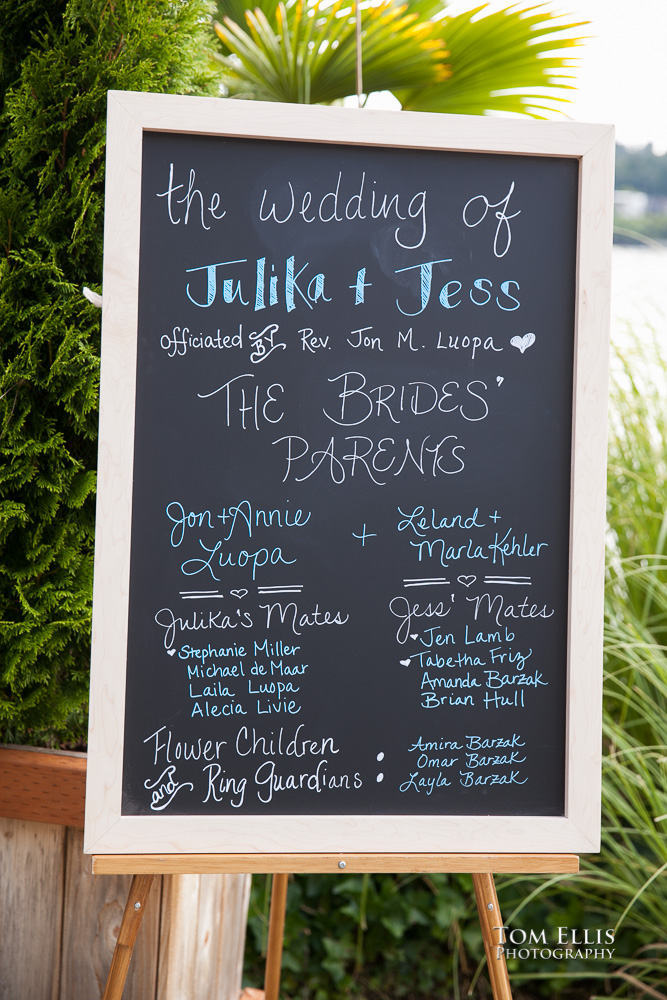 the wedding of
Julika + Jess
officiated BY Rev. Jon M. Luopa
THE BRIDES'
PARENTS
Jon + Annie
Luopa
+
Leland +
Marla Kehler
Julika's Mates
Stephanie Miller
Michael de Maar
Laila Luopa
Alecia Livie
Jess' Mates
Jen Lamb
Tabetha Friz
Amanda Barzak
Brian Hull
Flower Children
and Ring Guardians :
Amira Barzak
Omar Barzak
Layla Barzak
TOM ELLIS
PHOTOGRAPHY